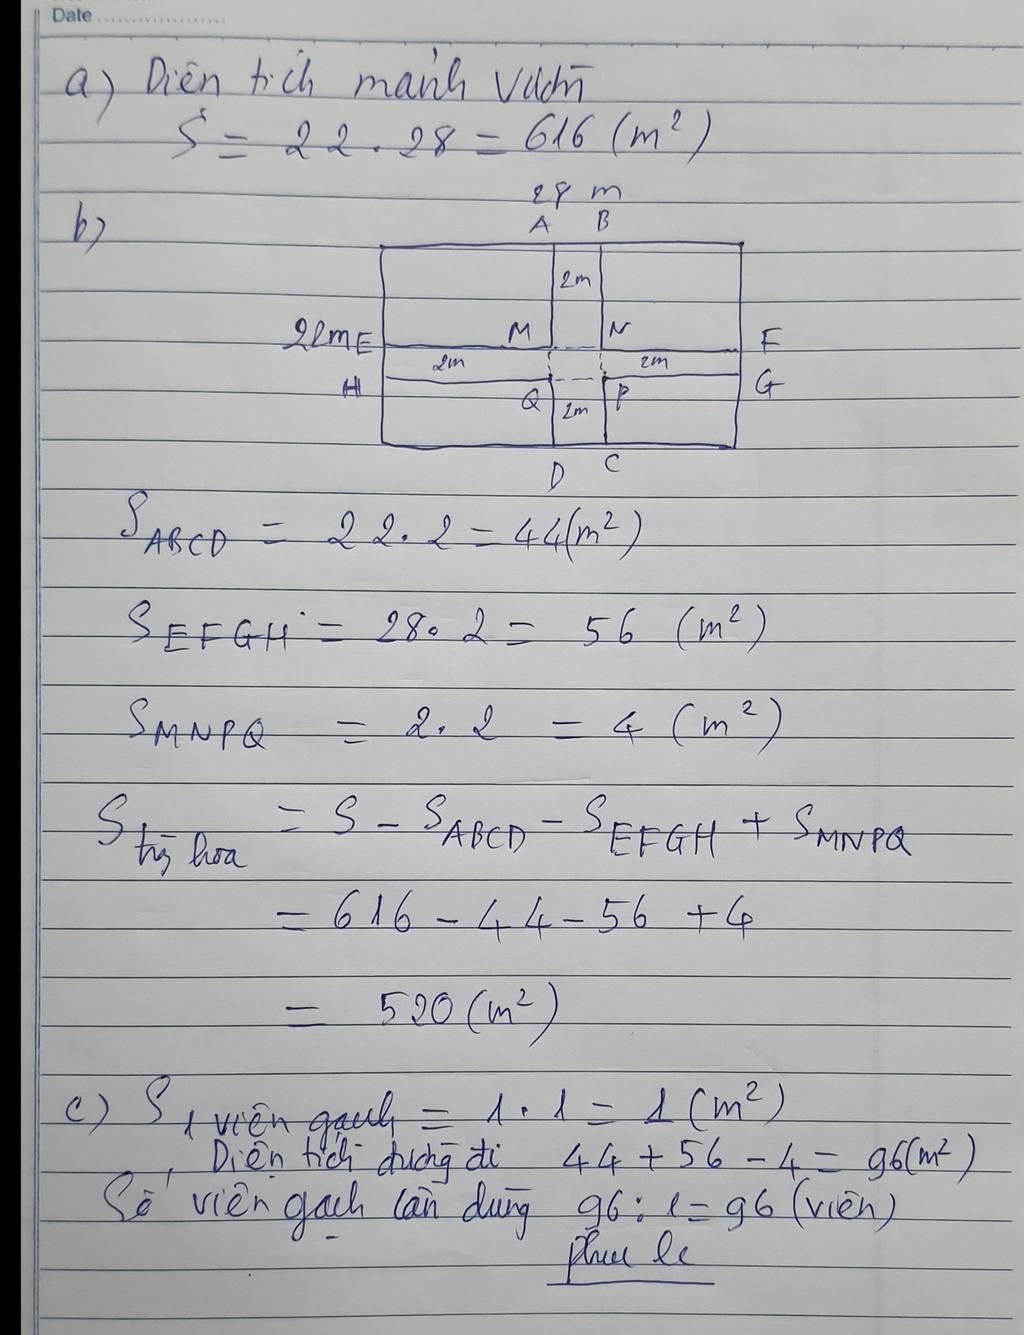 Date
a) Diện tích mảnh vườn
S = 22 . 28 = 616 (m²)
28 m
b)
A B
2m
22m E M N F
2m 2m
H Q 2m P G
D C
S ABCD = 22. 2 = 44(m²)
S EFGH = 28. 2 = 56 (m²)
S MNPQ = 2. 2 = 4 (m²)
S trồng hoa = S - S ABCD - S EFGH + S MNPQ
= 616 - 44 - 56 + 4
= 520 (m²)
c) S 1 viên gạch = 1 . 1 = 1 (m²)
Diện tích đường đi 44 + 56 - 4 = 96(m²)
Số viên gạch cần dùng 96 : 1 = 96 (viên)
phuc le